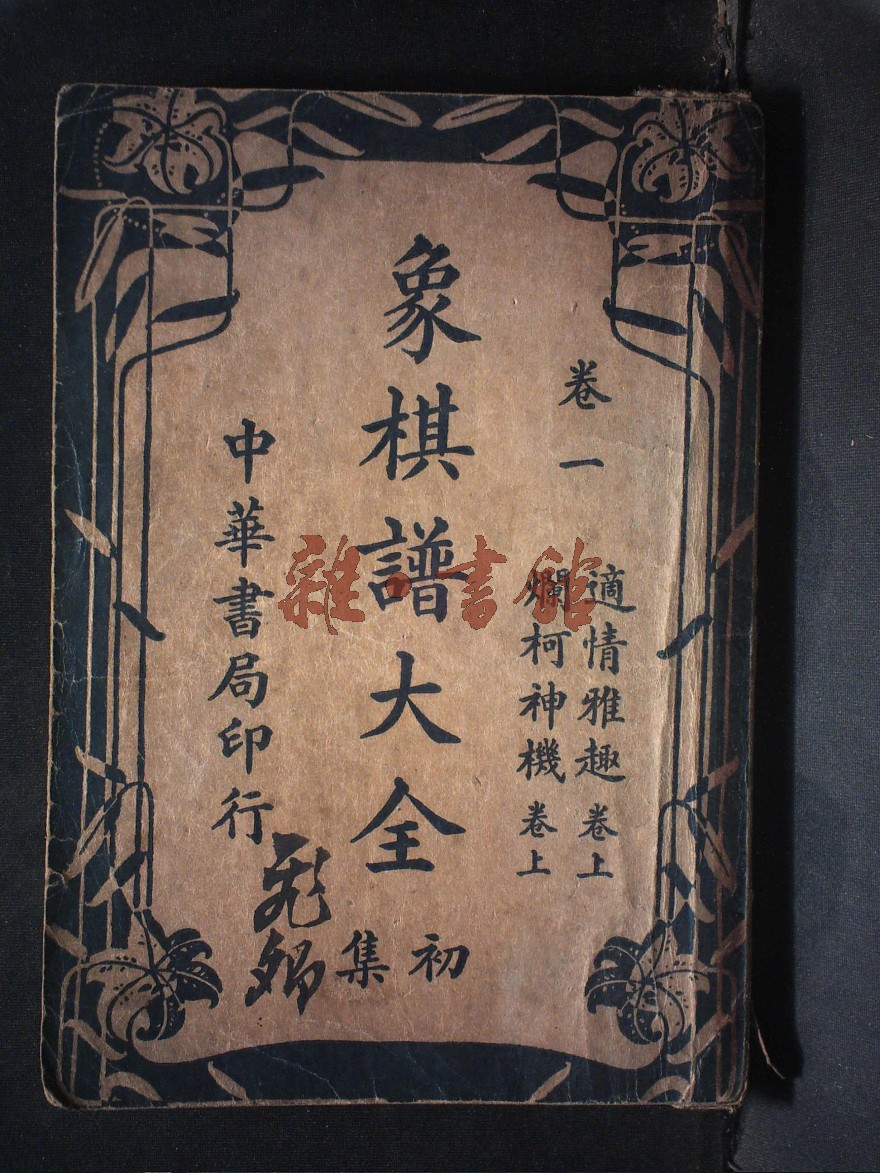 卷一
適情雅趣卷上
爛柯神機卷上
象棋譜大全
初集
中華書局印行
雜·書館